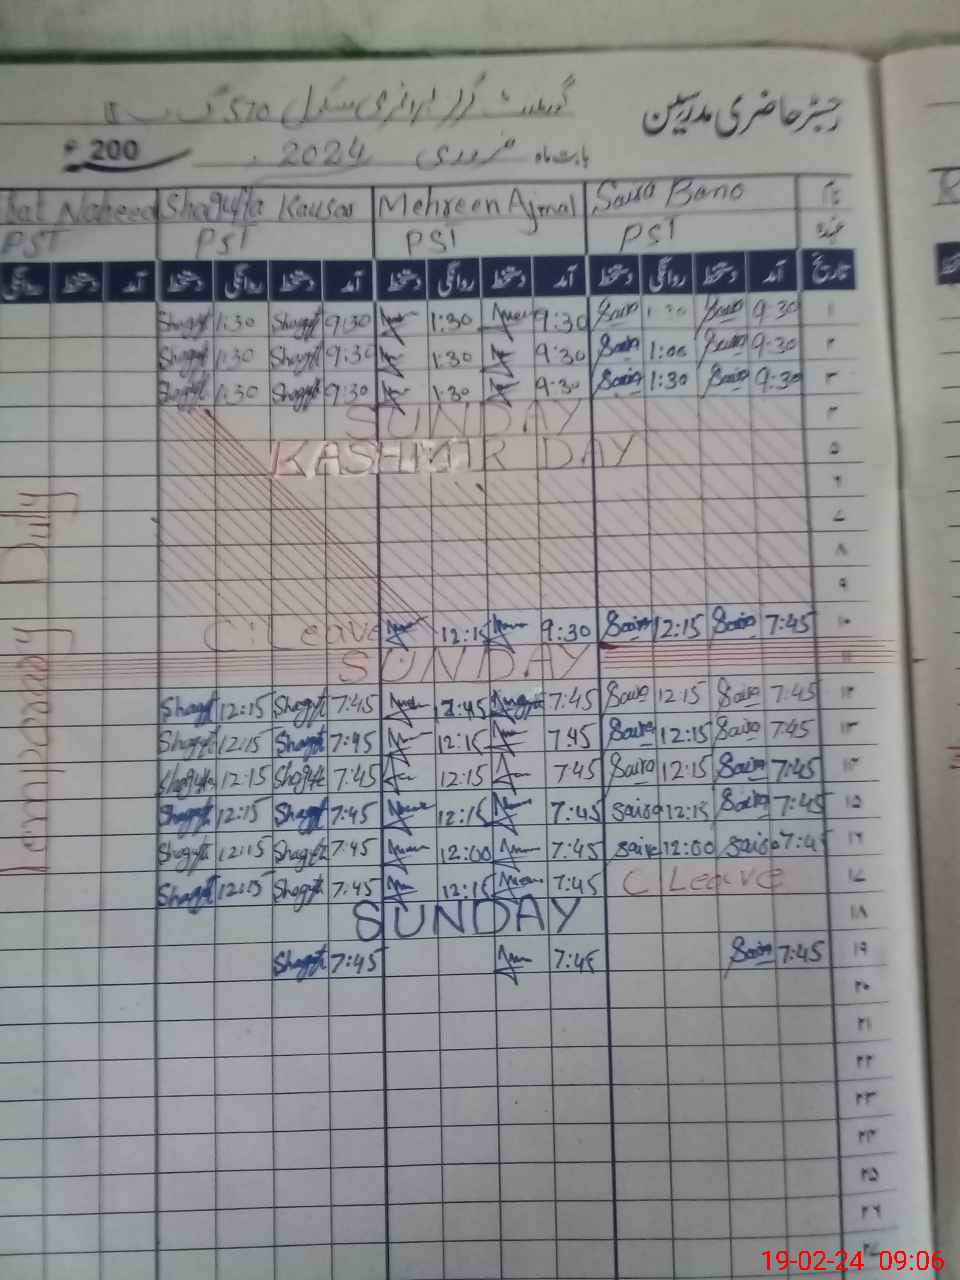 رجسٹر حاضری مدرسین
گورنمنٹ گرلز پرائمری سکول 570 گ ب
بابت ماہ فروری 2024 ء200
نام Saira Bano Mehreen Ajmal Shagufta Kausar Naheed
عہدہ PST PST PST PST
تاریخ آمد دستخط روانگی دستخط آمد دستخط روانگی دستخط آمد دستخط روانگی دستخط آمد دستخط روانگی
۱ 9:30 Saira 9:30 1:30 9:30 Shaguft 1:30 Shaguft
۲ 9:30 Saira 1:00 Saira 9:30 1:30 9:30 Shaguft 1:30 Shaguft
۳ 9:30 Saira 1:30 Saira 9:30 1:30 9:30 Shaguft 1:30 Shaguft
۴ SUNDAY
۵ KASHMIR DAY
۶
۷
۸
۹
۱۰ 7:45 Saira 12:15 Saira 9:30 12:15 C. Leave
۱۱ SUNDAY
۱۲ 7:45 Saira 12:15 Saira 7:45 12:45 7:45 Shagyft 12:15 Shagyft
۱۳ 7:45 Saira 12:15 Saira 7:45 12:15 7:45 Shagyft 12:15 Shagyft
۱۴ 7:45 Saira 12:15 Saira 7:45 12:15 7:45 Shagyft 12:15 Shagufta
۱۵ 7:45 Saira 12:15 Saira 7:45 12:15 7:45 Shagyft 12:15 Shagyft
۱۶ 7:45 Saira 12:00 Saira 7:45 12:00 7:45 Shagyft 12:15 Shagyft
۱۷ C Leave 7:45 12:15 7:45 Shagyft 12:15 Shagyft
۱۸ SUNDAY
۱۹ 7:45 Saira 7:45 7:45 Shagyft
۲۰
۲۱
۲۲
۲۳
۲۴
۲۵
۲۶
۲۷
Temporary Duty
19-02-24 09:06